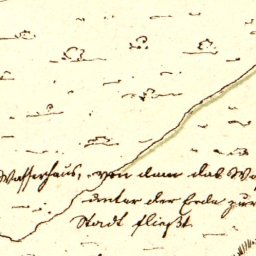 Wasserhaus, von dem das Wa
unter der Erde zur
Stadt fließt